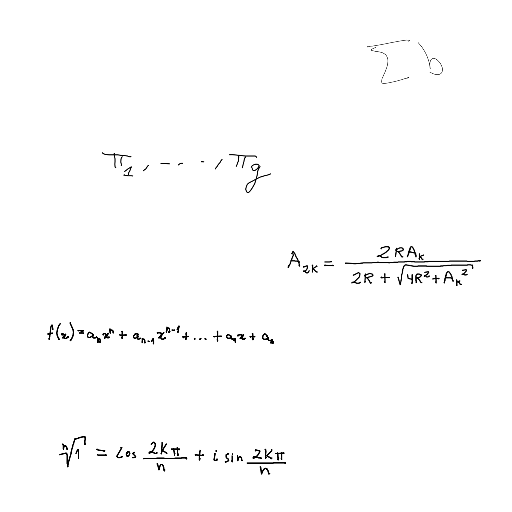 ∑b
π₁, ..., π_g
A_{2K} = \frac{2RA_K}{2R + \sqrt{4R^2 + A_K^2}}
f(x) = a_n x^n + a_{n-1} x^{n-1} + ... + a_1 x + a_0
\sqrt[n]{1} = cos \frac{2Kπ}{n} + i sin \frac{2Kπ}{n}